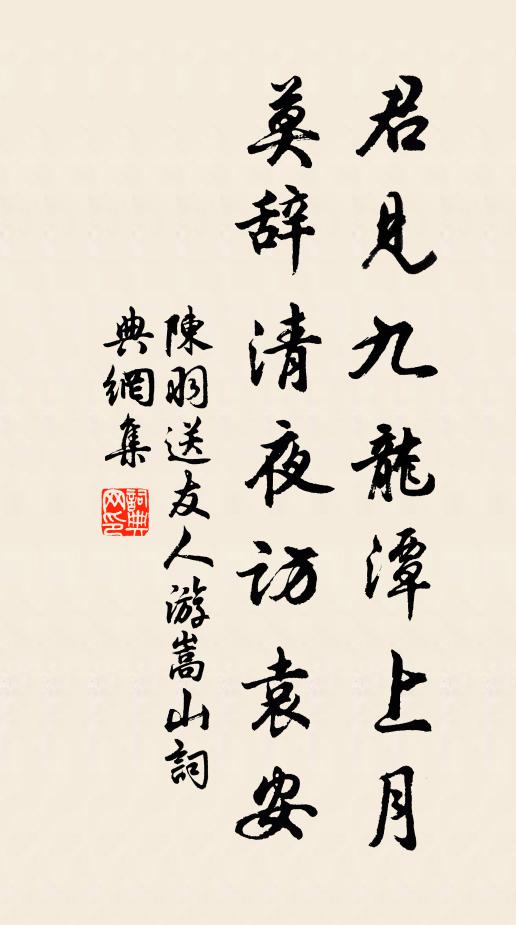 君見九龍潭上月
莫辞清夜访袁安
陳羽送友人游嵩山詞
典網集
詞典网印